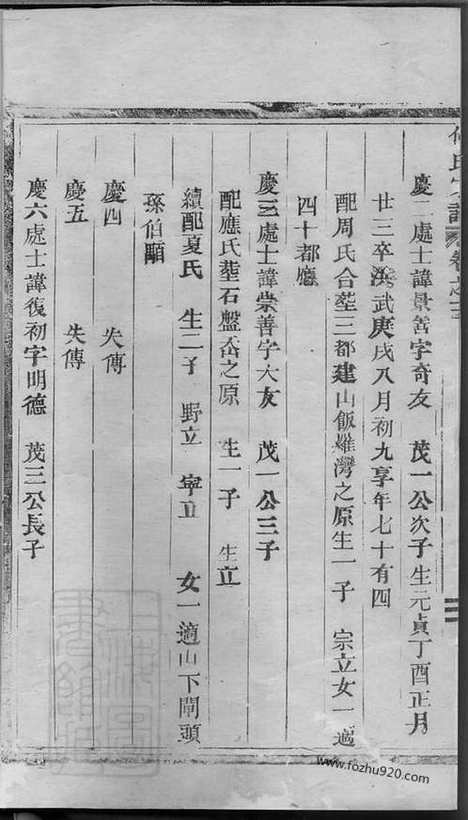 氏宗譜 卷之三
慶二處士諱景善字奇友 茂一公次子生元貞丁酉正月
廿三卒洪武庚戌八月初九享年七十有四
配周氏合塟三都建山飯羅灣之原生一子 宗立女一適
四十都應
慶三處士諱崇善字大友 茂一公三子
配應氏塟石盤岙之原 生一子 生立
續配夏氏 生二子 野立 寧立 女一適山下閘頭
孫伯顯
慶四 失傳
慶五 失傳
慶六處士諱復初字明德 茂三公長子
www.fozhu920.com